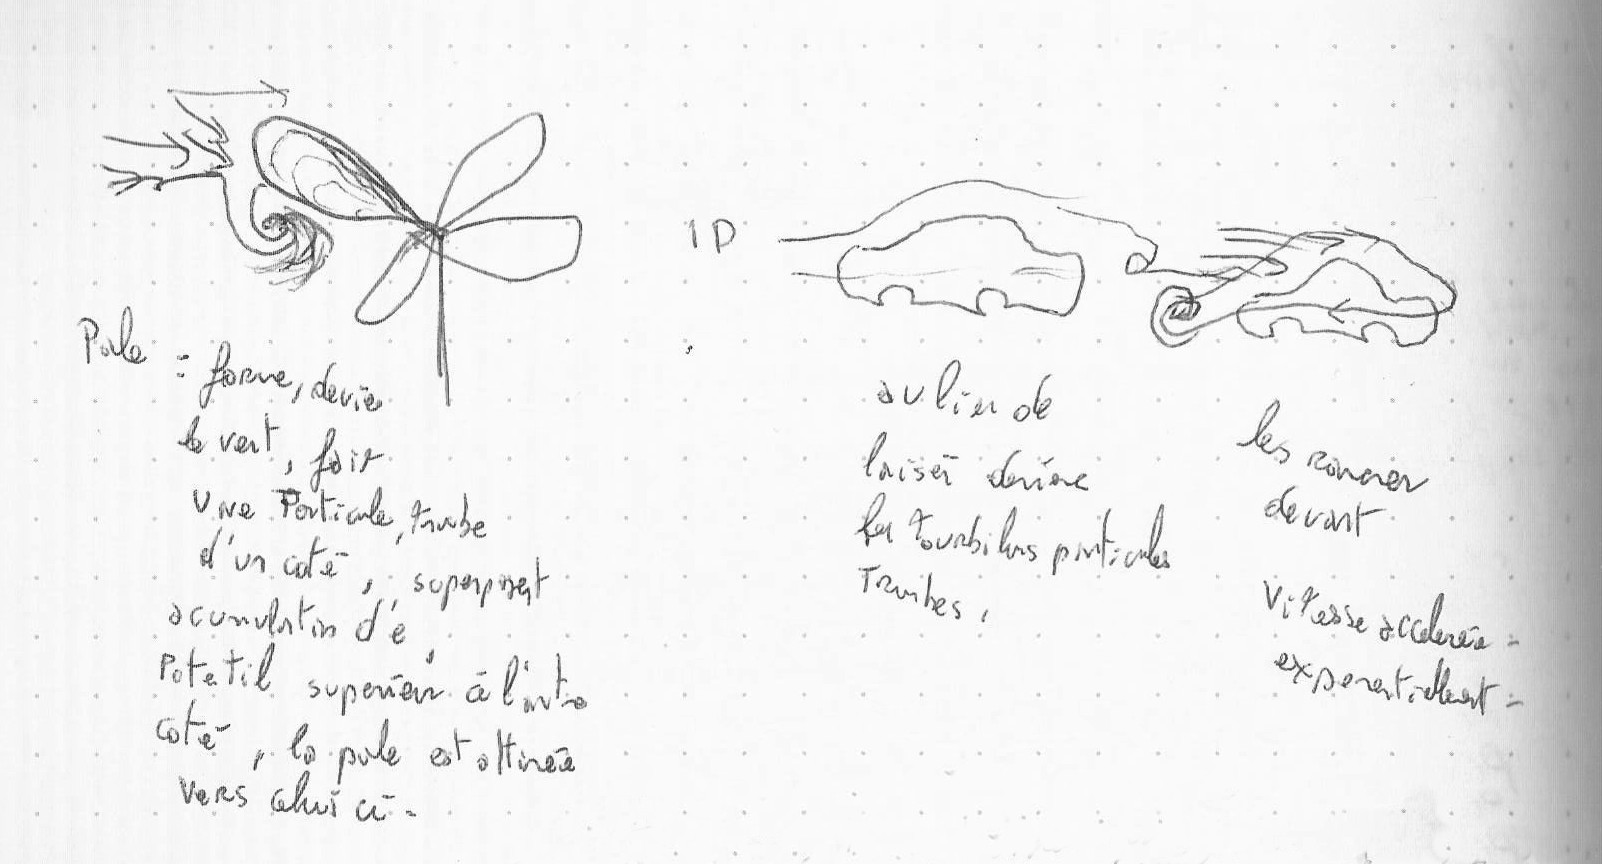 Pale : forme, dévie
le vent, fait
vive Particule, tombe
d'un coté, superposent
acumulation d'é
Potetil superieur à l'autre
coté, la pale est attirée
vers celui ci.
1D
au lieu de
laisser derière
les tourbilons particules
les ramener
devant
Vitesse acceleréé
exponentiellement